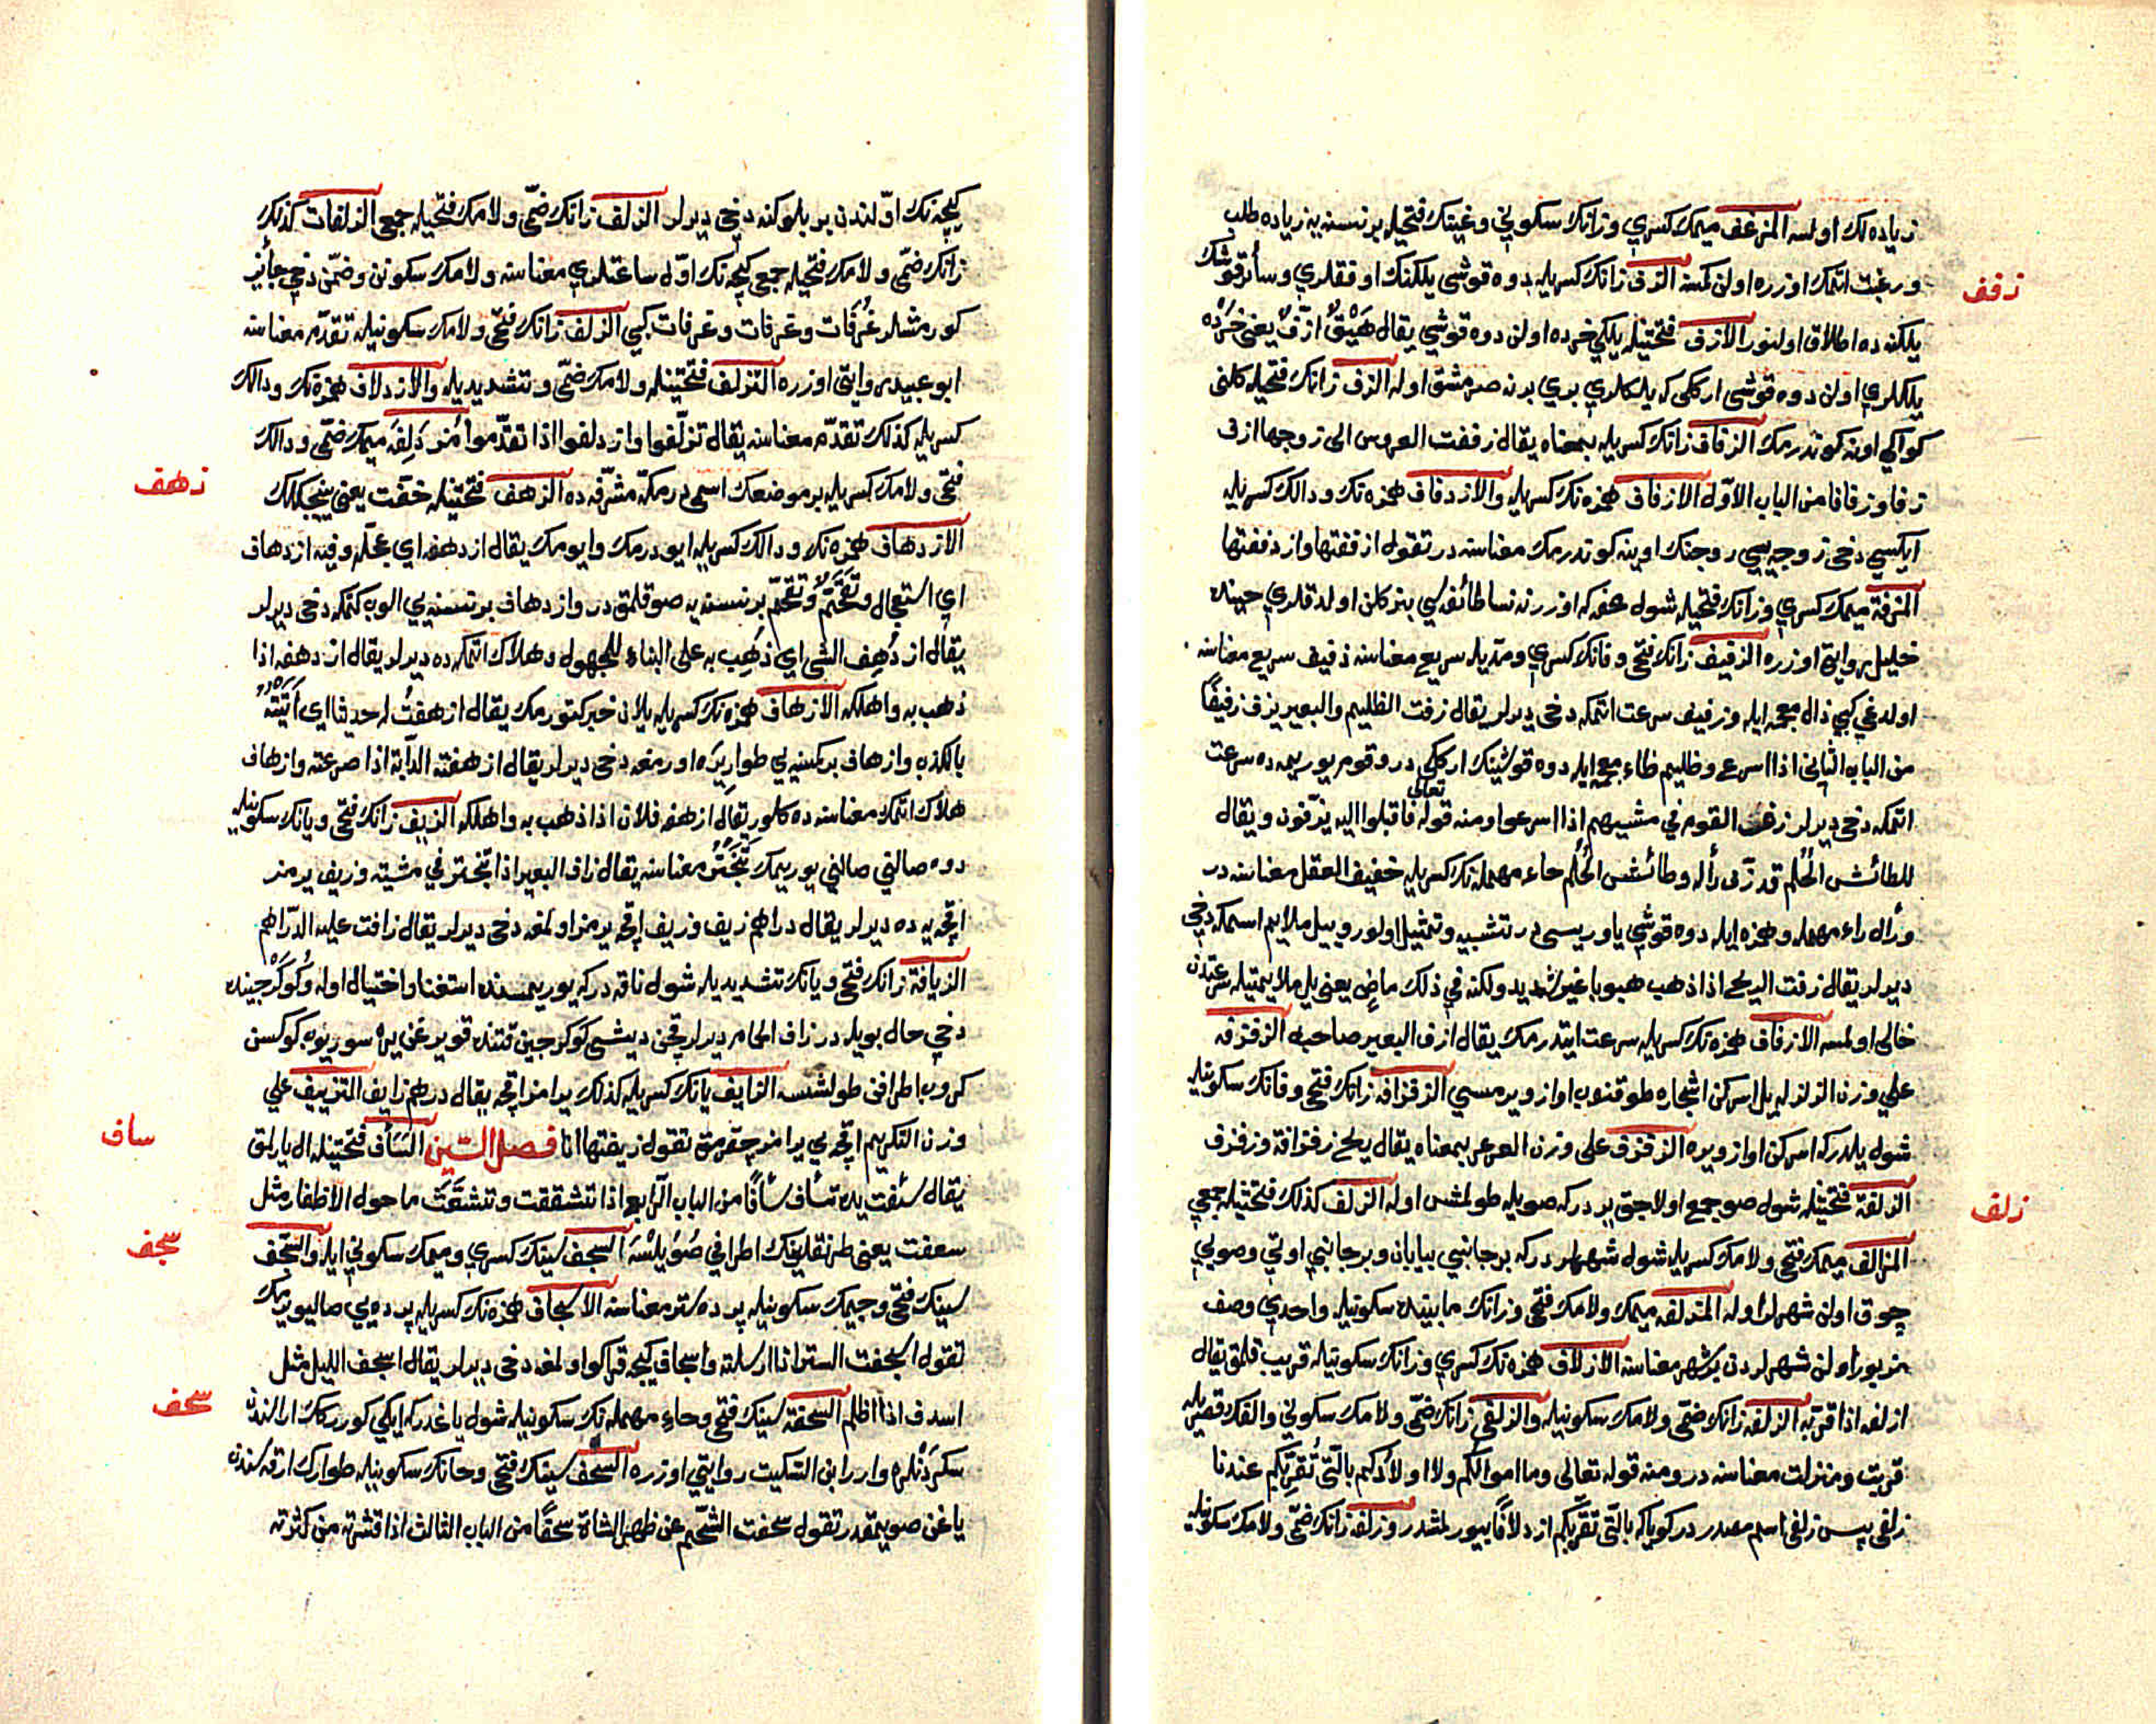 زياده لك اولسه المزغف ميمك كسري وزانك سكوني وغينك فتحيله بر نسنه يه زياده طلب
ورغبت اتمك اوزره اولن كمسه الزف زانك كسريله دوه قوشى يلكنك اوفقلري وسائر قوشك
زفف
يلكنه ده اطلاق اولنور الازف فتحتيله يلكي خرده اولن دوه قوشي يقال هيق ازف يعنى خرده
يلكلري اولن دوه قوشى اركلى كه يلكلري بري برنه صرمشق اوله الزف زانك فتحيله كلنى
كواكي اونه كوندرمك الزفاف زانك كسريله بمعناه يقال زففت العروس الى زوجها ازف
زفا وزفافا من الباب الاول الازفاف همزه نك كسريله والازدفاف همزه نك ودالك كسريله
ايكسي دخى زوجه يى زوجنك اوينه كوندرمك معناسنه در تقول ازففتها وازدففتها
المزفة ميمك كسري وزانك فتحيله شول محفه كه اوزرنه نسا طائفه سي بنر كلن اولدقلري حينده
خليل روايتى اوزره الزفيف زانك فتحى وفانك كسري ومديله سريع معناسنه ذفيف سريع معناسنه
اولدغي كبي ذال معجمه ايله وزفيف سرعت اتمكه دخى ديرلر يقال زفت الظليم والبعير يزف زفيفًا
من الباب الثاني اذا اسرع وظليم ظاء معجمه ايله دوه قوشينك اركلى در وقوم يوريمه ده سرعت
اتمكه دخى ديرلر زفت القوم في مشيهم اذا اسرعوا ومنه قوله تعالى فاقبلوا اليه يزفون ويقال
للطائش الحلم قد زف رأله وطائش الحلم حاء مهمله نك كسريله خفيف العقل معناسنه در
ورأل راء مهمله وهمزه ايله دوه قوشي ياوريسى در تشبيه وتمثيل اولور وييل ملايم اسمكه دخى
ديرلر يقال زفت الريح اذا ذهب هبوبا غير شديد ولكنه في ذلك ماض يعنى يل ملايمتيله سرعتدن
خالى اولمسه الازفاف همزه نك كسريله سرعت ايتدرمك يقال ازف البعير صاحبه الزفزفه
على وزن الزلزله يل اسركن اشجاره طوقنوب اواز ويرمسي الزفزافه زانك فتحى وفانك سكونيله
شول يلدر كه اسركن اواز ويره الزفزف على وزن العرعر بمعناه يقال ريح زفزافة وزفزف
الزلفة فتحتيله شول صو جمع اولاجق ير در كه صويله طولمش اوله الزلف كذلك فتحتيله جمعي
زلف
المزالف ميمك فتحى ولامك كسريله شول شهرلر در كه بر جانبي بيابان وبر جانبي اوتي وصويي
چوق اولن شهرلر اوله المزلفه ميمك ولامك فتحى وزانك مابينده سكونيله واحدي وصف
مزبور اولن شهرلردن بر شهر معناسنه الازلاف همزه نك كسري وزانك سكونيله قريب قلمق يقال
ازلفه اذا قربه الزلفه زانك ضمى ولامك سكونيله والزلفى زانك ضمى ولامك سكوني والفك قصريله
قربت ومنزلت معناسنه در ومنه قوله تعالى وما اموالكم ولا اولادكم بالتى تقربكم عندنا
زلفى پس زلفى اسم مصدر در كويا كه بالتى تقربكم ازدلافًا بيورلمشدر وزلفة زانك ضمى ولامك سكونيله
كيجه نك اولندن بر بلوكنه دخى ديرلر الزلف زانك ضمى ولامك فتحيله جمعى الزلفات كذلك
زانك ضمى ولامك فتحيله جمعى كيجه نك اول ساعتلري معناسنه ولامك سكونن وضمن دخى جائز
كورمشلر غرفات وغرفات وغرفات كبي الزلف زانك فتحى ولامك سكونيله تقدم معناسنه
ابو عبيد روايتى اوزره التزلف فتحتينله ولامك ضمى وتشديديله والازدلاف همزه نك ودالك
كسريله كذلك تقدم معناسنه يقال تزلفوا وازدلفوا اذا تقدموا مزدلفه ميمك ضمى ودالك
فتحى ولامك كسريله بر موضعك اسمى در مكه مشرفه ده الزهف فتحتيله خفت يعنى ينجكلك
زهف
الازدهاف همزه نك ودالك كسريله ايودرمك وايومك يقال ازدهفه اي عجله وفيه ازدهاف
اي استعجال وتقحم وتقحم بر نسنه يه صوقلمق در وازدهاف بر نسنه يي الوب كتمكه دخى ديرلر
يقال ازدهف الشى اي ذهب به على البناء للمجهول وهلاك اتمكه ده ديرلر يقال ازدهفه اذا
ذهب به واهلكه الازهاف همزه نك كسريله يلان خبر كتورمك يقال ازهفت له حديثا اي اتيته
بالكذب وازهاف بر كسنه يي طوار يره اورمغه دخى ديرلر يقال ازهفته الدابة اذا صرعته وازهاف
هلاك اتمك معناسنه ده كلور يقال ازهفه فلان اذا ذهب به واهلكه الزيف زانك فتحى ويانك سكونيله
دوه صالنى صالنى يوريمك تبختر معناسنه يقال زاف البعير اذا تبختر في مشيته وزيف يرمز
اقچه يه ده ديرلر يقال دراهم زيف وزيف اقچه يرمز اولمغه دخى ديرلر يقال زافت عليه الدراهم
الزيافة زانك فتحى ويانك تشديديله شول ناقه در كه يوريمسنده استغنا واختيال اوله وكوكرجينده
دخى حال بويله در زاف الحام ديرلر قچن ديشى كوكرجين قتنده قويرغن يره سوريوب كوكسن
كروب اطرافن طولشسه الزايف يانك كسريله كذلك يرامز اقچه يقال درهم زايف التزييف على
وزن التكريم اقچه يي يرامز چقرمق تقول زيفتها انا فصل السين السأف فتحتيله ال يارلمق
ساف
يقال سئفت يده تسأف سأفًا من الباب الرابع اذا تشققت وتشعثت ما حول الاظفار مثل
سعفت يعنى طرنقلرينك اطرافي صويلسه السجف سينك كسري وجيمك سكوني ايله والسجف
سجف
سينك فتحى وجيمك سكونيله پرده ستر معناسنه الاسجاف همزه نك كسريله پرده يي صاليورمك
تقول اسجفت الستر اذا ارسلته واسجاف كيجه قراكو اولمغه دخى ديرلر يقال اسجف الليل مثل
اسدف اذا اظلم السحفة سينك فتحى وحاء مهمله نك سكونيله شول ياغدر كه ايكي كورركك ارالنده
سحف
سكردنلره وارر ابن السكيت روايتى اوزره السحف سينك فتحى وحانك سكونيله طوارك ارقه سندن
ياغن صويمقدر تقول سحفت الشحم عن ظهر الشاة سحفًا من الباب الثالث اذا قشرته من كثرته